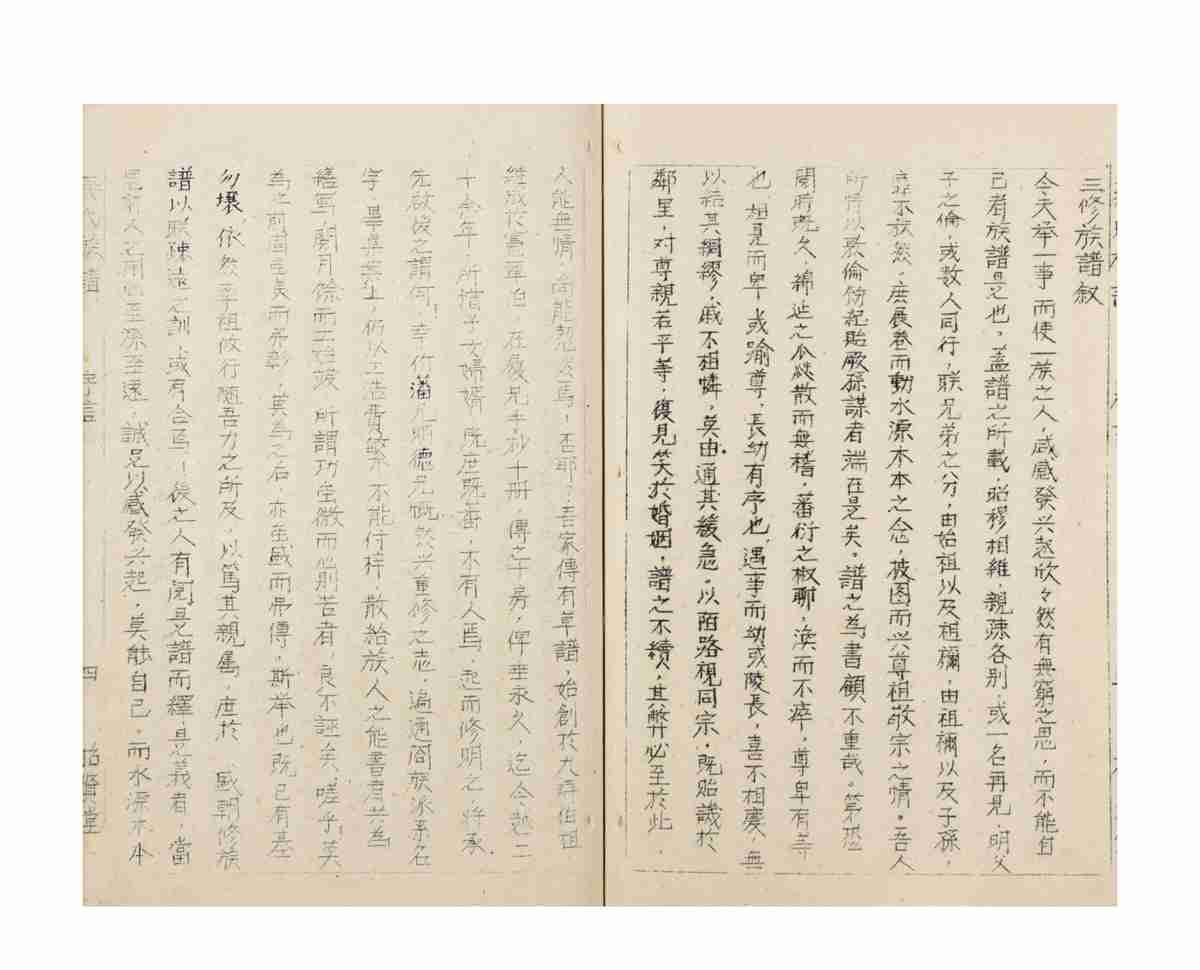 三修族譜叙
今夫举一事,而使一族之人,咸感發兴起欣々然有無窮之思,而不能自
己者族譜是也。蓋譜之所載,昭穆相維,親疎各别,或一名再見,明父
子之倫,或数人同行,联兄弟之分,由始祖以及祖禰,由祖禰以及子孫,
不秩然,庶展卷而動水源木本之念,披图而兴尊祖敬宗之情。吾人
所恃以敦倫飭紀貽厥孫謀者端在是矣。譜之為書顧不重哉。第恐
閱時既久,綿延之瓜瓞散而無稽,蕃衍之椒聊,渙而不萃,尊卑有等
也,相見而卑或踰尊,長幼有序也,遇事而幼或陵長,喜不相慶,無
以結其綢繆,戚不相憐,莫由通其緩急。以陌路視同宗,既貽譏於
鄰里,对尊親若平等,復見笑於婚姻,譜之不續,其弊必至於此,
人能無情,尚能恝然焉,否耶,吾家傳有草譜,始創於九伯祖
継成於憲章伯,在廢兄手抄十册,傳之千房,俾垂永久,迄今 二
十余年,所惜子女婦婿,既庶既蕃,不有人焉,起而修明之,将承
先啟後之謂何!幸竹溪兄炳德兄慨然兴重修之志,遍通阖族派系名
字,畢 仍以工浩費繁,不能付梓,散給族人之能書者共為
繕写,阅月餘而工始竣,所謂功虽微而心則苦者,良不誣矣,嗟乎!莫
為之前虽美而弗彰,莫為之后,亦虽盛而弗傳,斯举也既已有基
勿壞,依然率祖攸行随吾力之所及,以篤其親屬,庶於 盛朝修族
譜以联疎遠之訓,或有合焉!後之人有阅是譜而繹是義者,當
見前人之用心至深至遠,誠足以感發兴起,莫能自己,而水源木本
氏族譜 序言 四